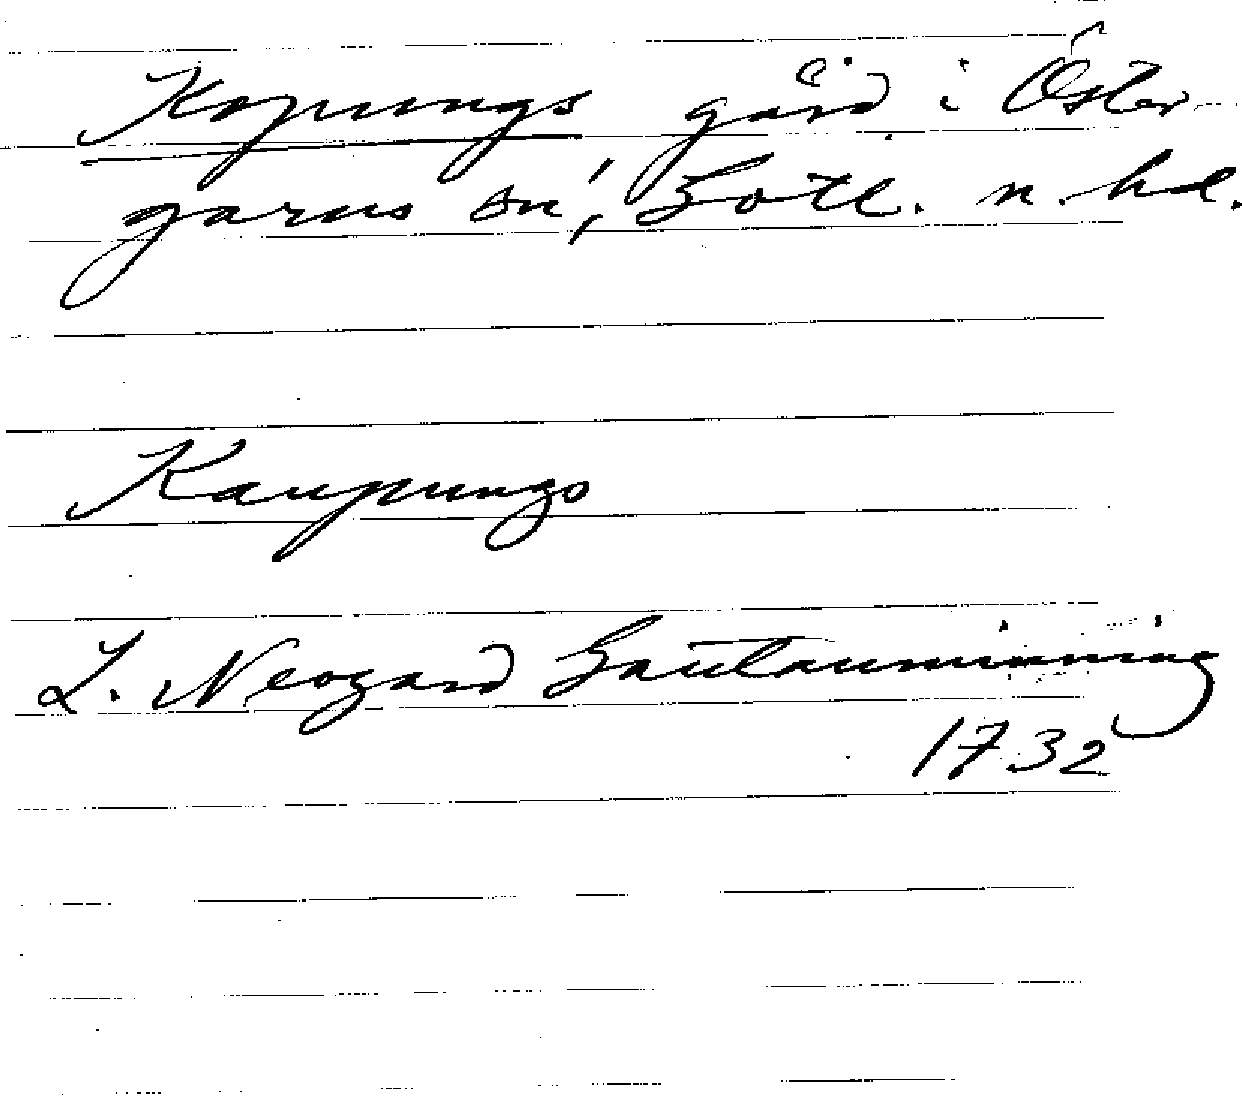 Kopungs gård i Öster-
garns sn, Gotl. n. hd.
Kaupungs
L. Neogard Gautauminning
1732